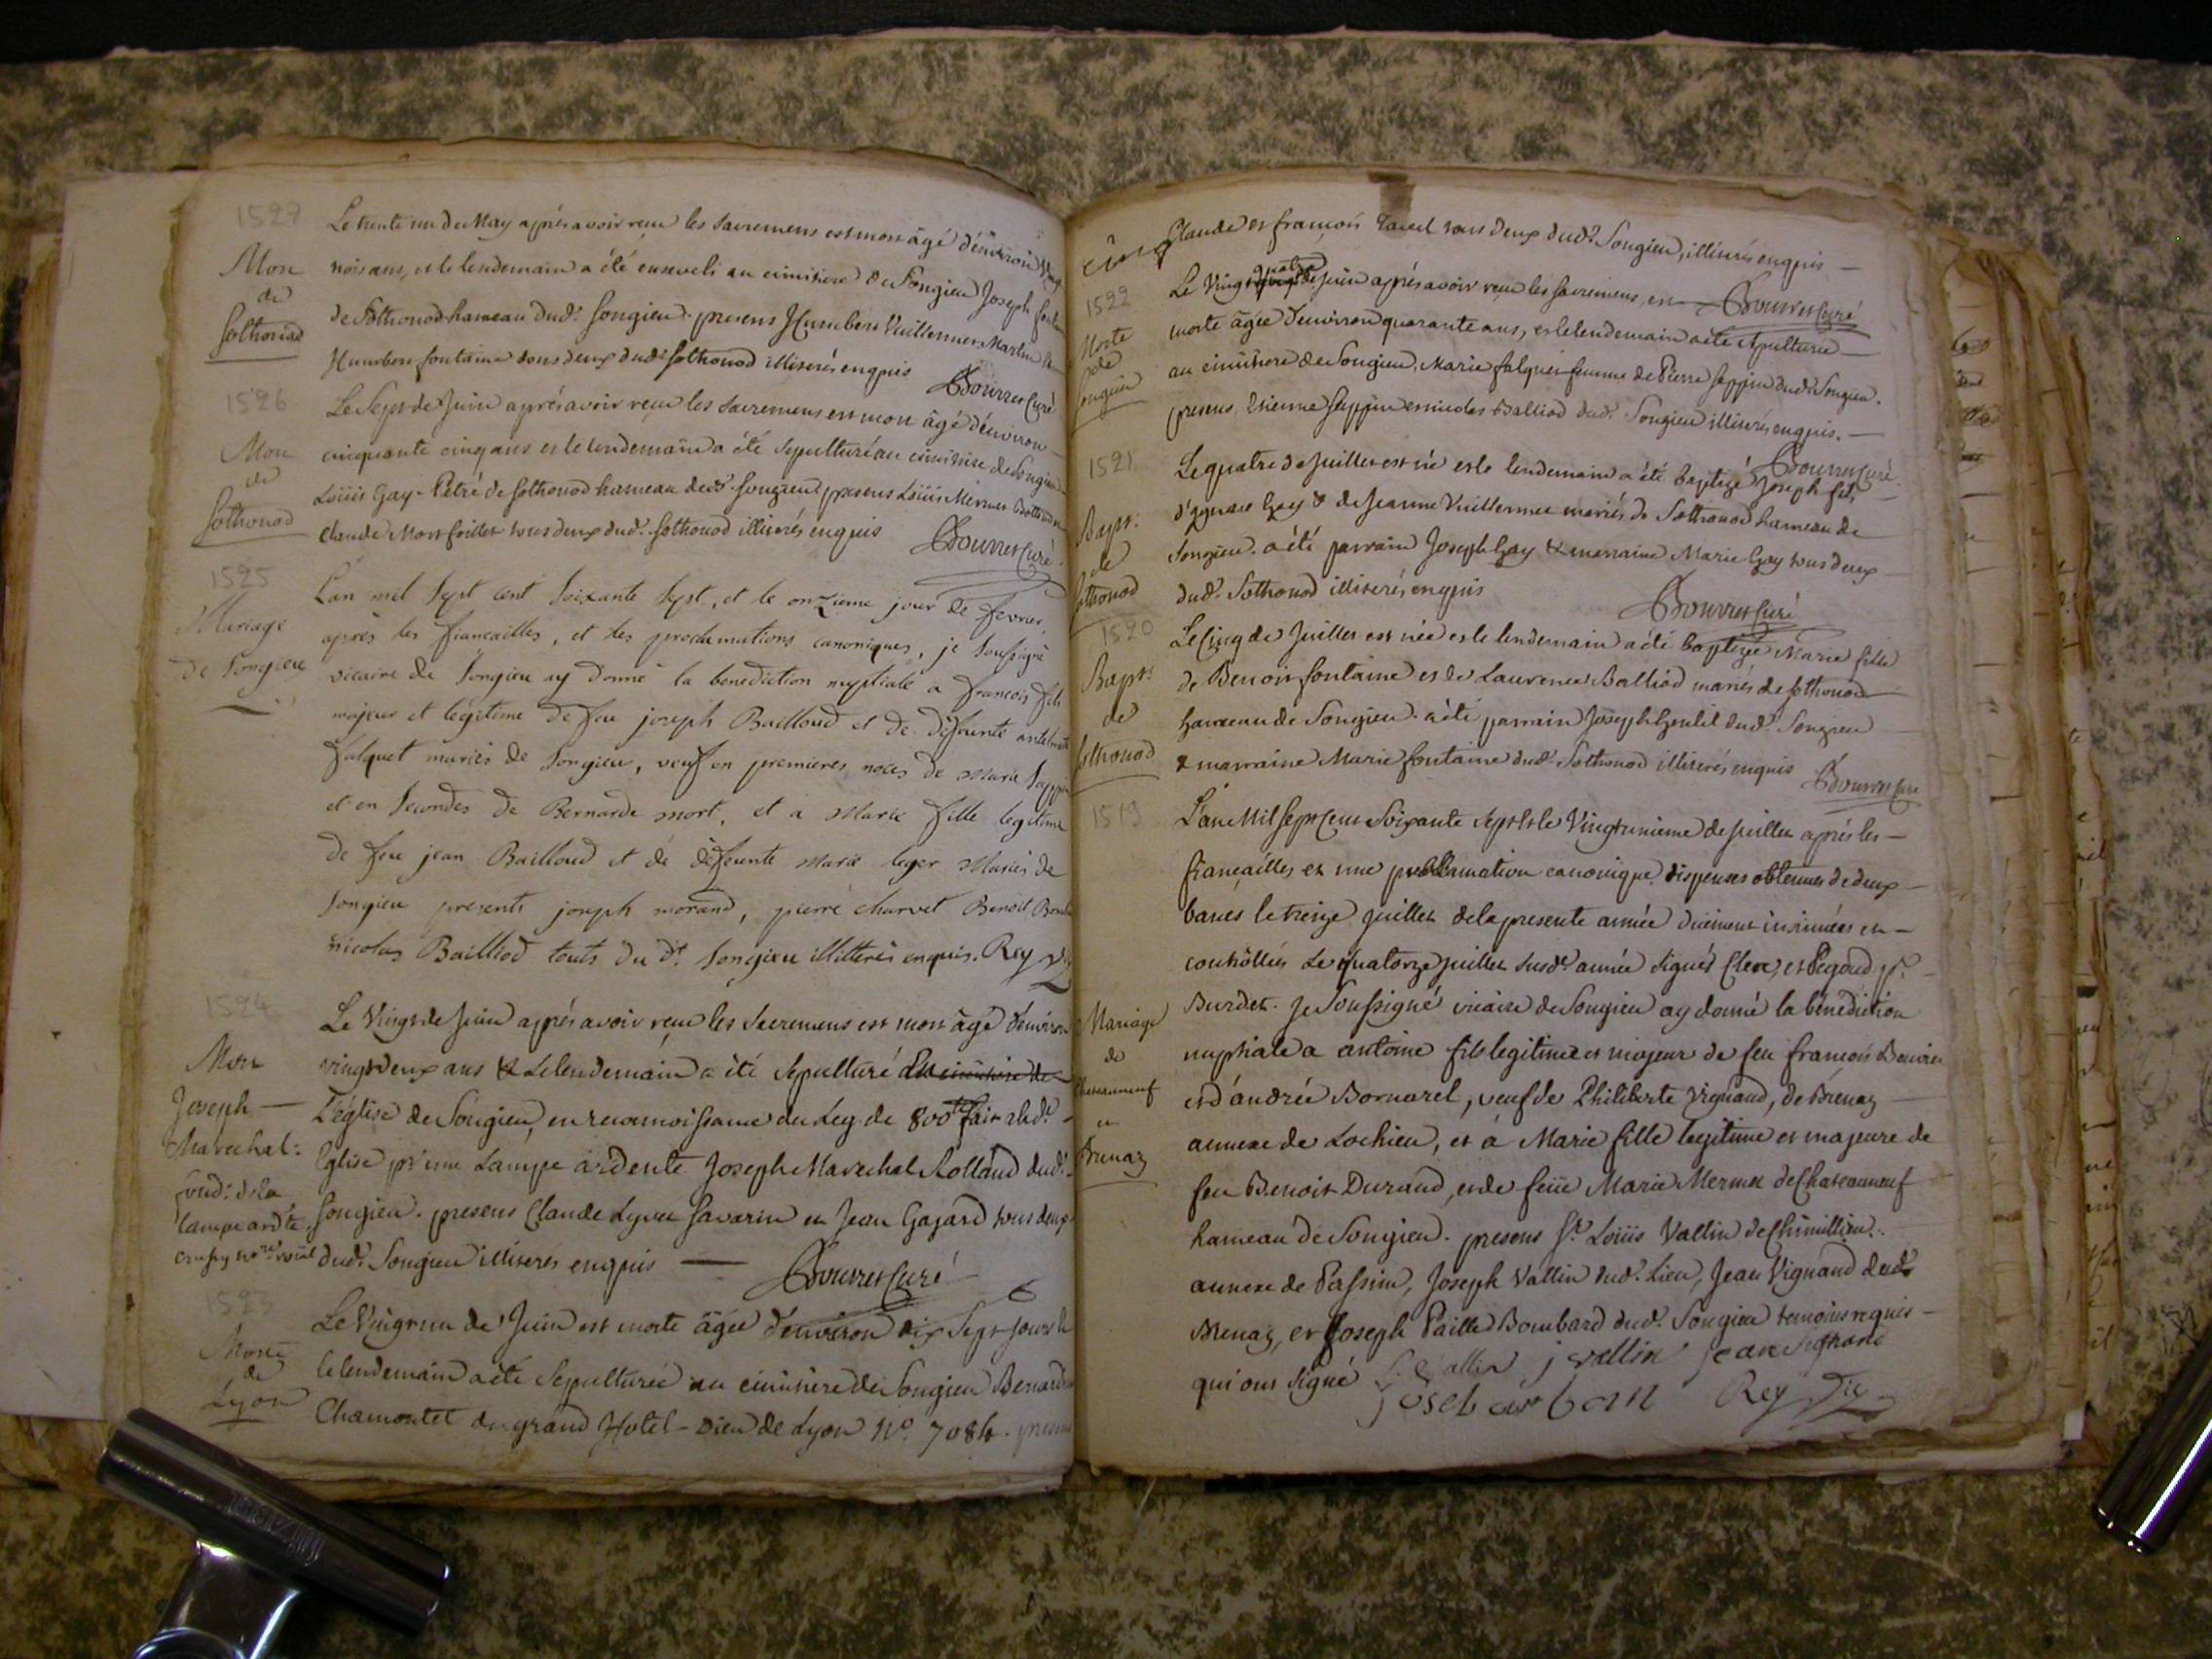 1527
Mort
de
Sothonod
Le trente un de May après avoir reçu les sacremens est mort âgé d'environ vingt
trois ans, et le lendemain a été enseveli au cimitiere de Songieu Joseph fontaine
de Sothonod hameau dud.t Songieu. presens Humbert Vuillermet Martin et
Humbert fontaine tous deux dud.t Sothonod illiterés enquis Bouvret Curé
1526
Mort
de
Sothonod
Le Sept de Juin après avoir reçu les sacremens est mort âgé d'environ
cinquante cinq ans et le lendemain a été sepulturé au cimitiere de Songieu
Loüis Gay-Pétré de Sothonod hameau dud.t Songieu presens Loüis Mermet
Claude Montfoillet tous deux dud.t Sothonod illiterés enquis
Bouvret Curé
1525
Mariage
de Songieu
L'an mil Sept cent Soixante Sept, et le onzieme jour de fevrier,
après les fiancailles, et les proclamations canoniques, je soussigné
vicaire de Songieu ay donné la benediction nuptiale a francois fils
majeur et légitime de feu joseph Bailloud et de défunte
falquet mariés de Songieu, veuf en premieres noces de Marie Seppin
et en secondes de Bernarde mort, et a Marie fille legitime
de feu jean Bailloud et de défeunte Marie leger Mariés de
Songieu presents joseph morand, pierre charvet Benoit
nicolas Bailliod touts du d.t Songieu illitterés enquis. Rey vic
1524
Mort
Joseph
Marechal.
fond.r de la
lampe ard.te
Le Vingt de Juin après avoir reçu les Sacremens est mort âgé d'environ
vingt deux ans & Le lendemain a été sepulturé au cimitiere de
L'église de Songieu, en reconnoissance du Leg de 800lt fait alad.te
Eglise pr une Lampe ardente Joseph Marechal Rolland dud.t
Songieu. presens Claude Lyvet Savarin et Jean Gajard tous deux
dud.t Songieu illiterés enquis — Bouvret Curé
1523
Morte
de
Lyon
Le Vingt un de Juin est morte âgée d'environ dix Sept jours &
le lendemain a été Sepulturée au cimitiere de Songieu Benard
Chamontet du grand Hotel-Dieu de Lyon N.o 7084. presens
Claude et francois tous deux dud.t Songieu, illiterés enquis —
Bouvret Curé
1522
Morte
de
Songieu
Le Vingt quatre de Juin après avoir reçu les sacremens, est
morte âgée d'environ quarante ans, et le lendemain a été sepulturée —
au cimitiere de Songieu, Marie falquet femme de Pierre Seppin dud.t Songieu.
presens, Etienne Seppin et nicolas Balliod dud.t Songieu illiterés enquis. —
Bouvret Curé
1521
Bapt.
de
Sothonod
Le quatre de Juillet est né et le lendemain a été baptizé Joseph fils
d'aynard Gay & de Jeanne Vuillermet mariés de Sothonod hameau de
Songieu. a été parrain Joseph Gay & marraine Marie Gay tous deux
dud.t Sothonod illiterés enquis
Bouvret Curé
1520
Bapt.
de
Sothonod
Le Cinq de Juillet est née et le lendemain a été baptizée Marie fille
de Benoit fontaine et de Laurence Balliod mariés de Sothonod
hameau de Songieu. a été parrain Joseph Gentil dud.t Songieu
& marraine Marie fontaine dud.t Sothonod illiterés enquis Bouvret Curé
1519
Mariage
de
Chateauneuf
et
Brenaz
L'an Mil Sept Cent Soixante Sept & le Vingt unieme de juillet après les —
fiançailles et une proclamation canonique, dispenses obtenues de deux —
bancs le treize juillet de la presente année düement insinuées et —
contröllées Le quatorze juillet susd.te année signés Clerc, et Pegoud pr.
Burdet. Je Soussigné vicaire de Songieu ay donné la bénédiction
nuptiale a antoine fils legitime et majeur de feu francois Bouvier
et d'andrée Bornarel, veuf de Philiberte Vignand, de Brenaz
annexe de Lochieu, et à Marie fille legitime et majeure de
feu Benoit Durand, et de feüe Marie Mermet de Chateauneuf
hameau de Songieu. presens S.r Loüis Vallin de Chimillieu.
annexe de Passin, Joseph Vallin dud.t Lieu, Jean Vignand dud.t
Brenaz, et Joseph Paille Bombard dud.t Songieu temoins requis —
qui ont signé L. Vallin j vallin jean vignand
Rey Vic